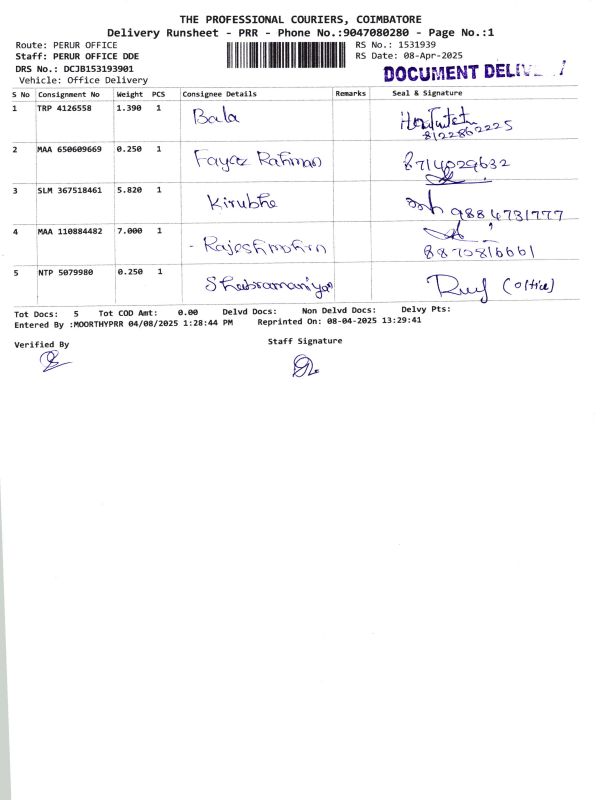 THE PROFESSIONAL COURIERS, COIMBATORE
Delivery Runsheet - PRR - Phone No.:9047080280 - Page No.:1
Route: PERUR OFFICE RS No.: 1531939
Staff: PERUR OFFICE DDE RS Date: 08-Apr-2025
DRS No.: DCJB153193901 DOCUMENT
Vehicle: Office Delivery
S No Consignment No Weight PCS Consignee Details Remarks Seal & Signature
1 TRP 4126558 1.390 1 Bala
8122862225
2 MAA 650609669 0.250 1 Fayaz Rahman 8714029632
3 SLM 367518461 5.820 1 Kirubhe 9884731777
4 MAA 110884482 7.000 1 - Rajeshmohan
8870816661
5 NTP 5079980 0.250 1 (Office)
Tot Docs: 5 Tot COD Amt: 0.00 Delvd Docs: Non Delvd Docs: Delvy Pts:
Entered By :MOORTHYPRR 04/08/2025 1:28:44 PM Reprinted On: 08-04-2025 13:29:41
Verified By Staff Signature